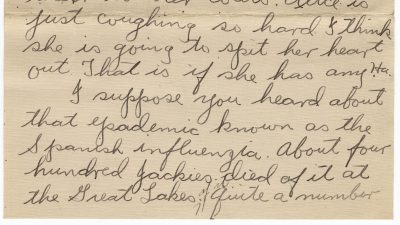 just coughing so hard I think
she is going to spit her heart
out. That is if she has any Ha.
I suppose you heard about
that epademic known as the
Spanish influenzia. About four
hundred Jackies died of it at
the Great Lakes. Quite a number